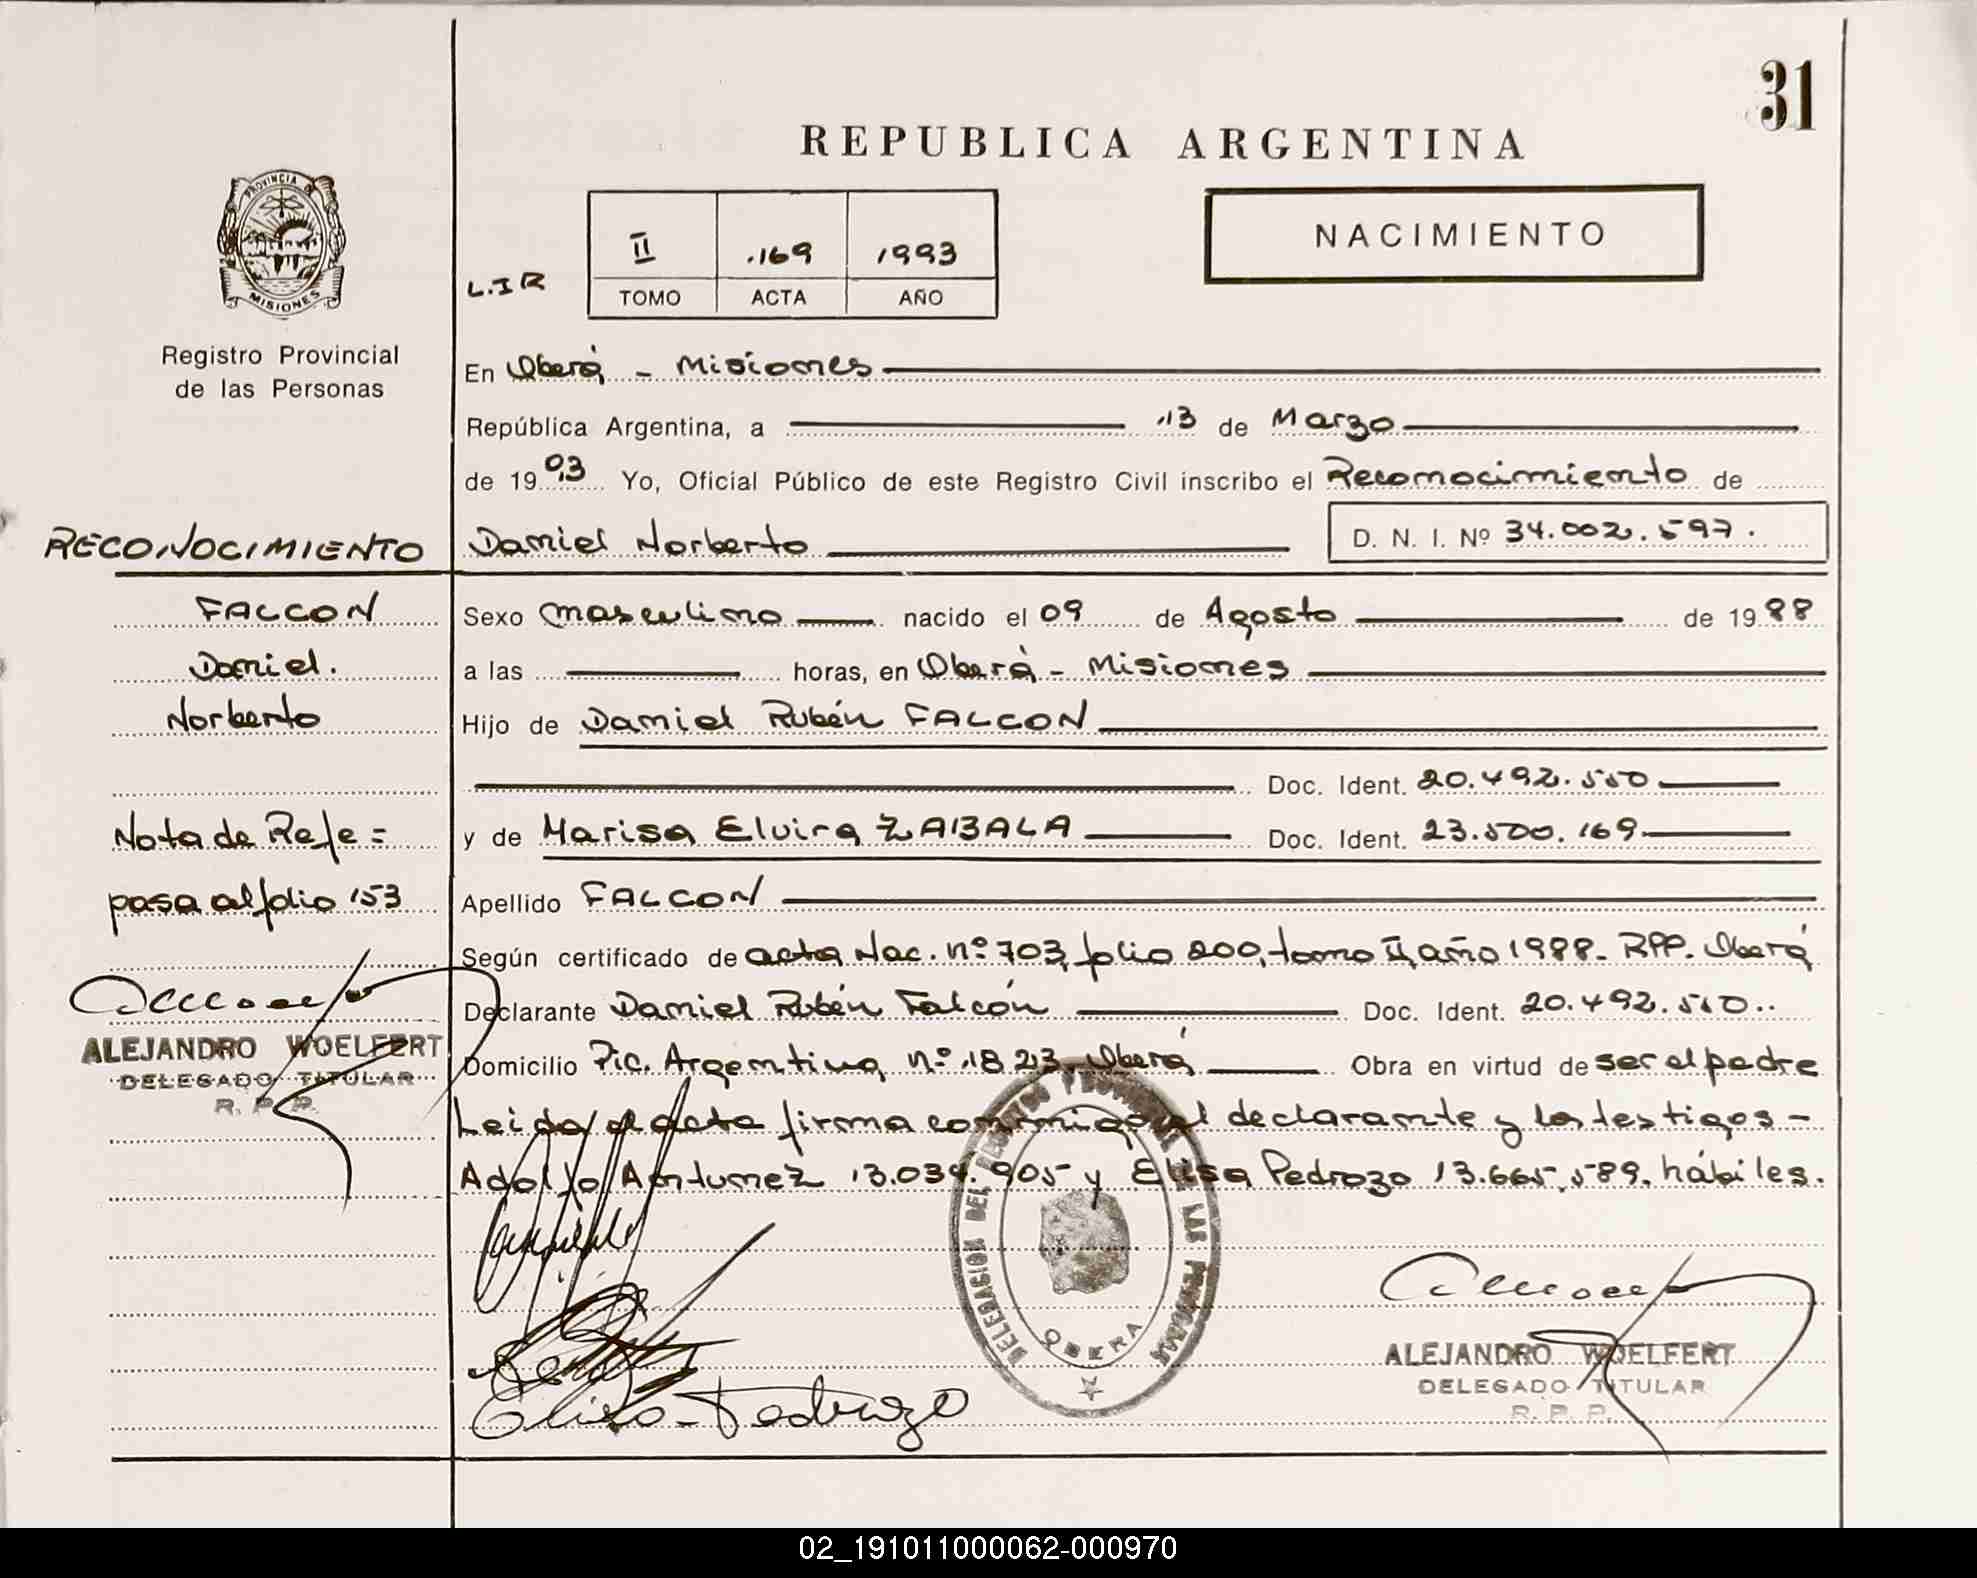 31
REPUBLICA ARGENTINA
PROVINCIA DE
MISIONES
Registro Provincial
de las Personas
L.I R
II 169 1993
TOMO ACTA AÑO
NACIMIENTO
En Oberá - Misiones
República Argentina, a 13 de Marzo
de 1993 Yo, Oficial Público de este Registro Civil inscribo el Reconocimiento de
RECONOCIMIENTO
Daniel Norberto D. N. I. Nº 34.002.597.
FALCON
Daniel.
Norberto
Nota de Refe=
pasa al folio 153
ALEJANDRO WOELFERT
DELEGADO TITULAR
R. P. P.
Sexo masculino nacido el 09 de Agosto de 1988
a las horas, en Oberá - Misiones
Hijo de Daniel Rubén FALCON
Doc. Ident. 20.492.550
y de Marisa Elvira ZABALA Doc. Ident. 23.500.169
Apellido FALCON
Según certificado de acta Nac. nº 703, folio 200, tomo II, año 1988. RPP. Oberá
Declarante Daniel Rubén Falcón Doc. Ident. 20.492.550..
Domicilio Pic. Argentina nº 1823, Oberá Obra en virtud de ser el padre
Leida el acta firma conmigo el declarante y los testigos -
Adolfo Antunez 13.034.905 y Elisa Pedrozo 13.665.589. hábiles.
DELEGACION DEL REGISTRO PROVINCIAL DE LAS PERSONAS
OBERA
Elisa Pedrozo
ALEJANDRO WOELFERT
DELEGADO TITULAR
R. P. P.
02_191011000062-000970